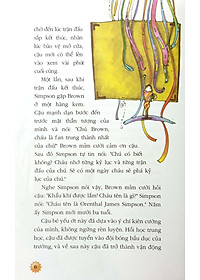 chờ đến lúc trận đấu
sắp kết thúc, nhân
lúc bảo vệ mở cửa,
cậu mới có thể lẻn
vào xem vài phút
cuối cùng.
Một lần, sau khi
trận đấu kết thúc,
Simpson gặp Brown
ở một hàng kem.
Cậu mạnh dạn bước đến
trước mặt thần tượng của
mình và nói: "Chú Brown,
cháu là fan trung thành nhất
của chú!" Brown mỉm cười cảm ơn cậu.
Sau đó Simpson tự tin nói: "Chú có biết
không? Cháu nhớ từng kỷ lục và từng trận đấu
của chú. Sẽ có một ngày cháu sẽ phá kỷ
lục của chú."
Nghe Simpson nói vậy, Brown cười hỏi
cậu: "Khẩu khí được lắm! Cháu tên là gì?" Simpson
nói: "Cháu tên là Orenthal James Simpson." Năm
ấy Simpson mới mười ba tuổi.
Cậu bé yêu từ này đã dựa vào ý chí kiên cường
của mình, không ngừng rèn luyện. Hồi học trung
học, cậu đã được tuyển vào đội bóng bầu dục của
trường, và về sau này cậu đã trở thành vận động